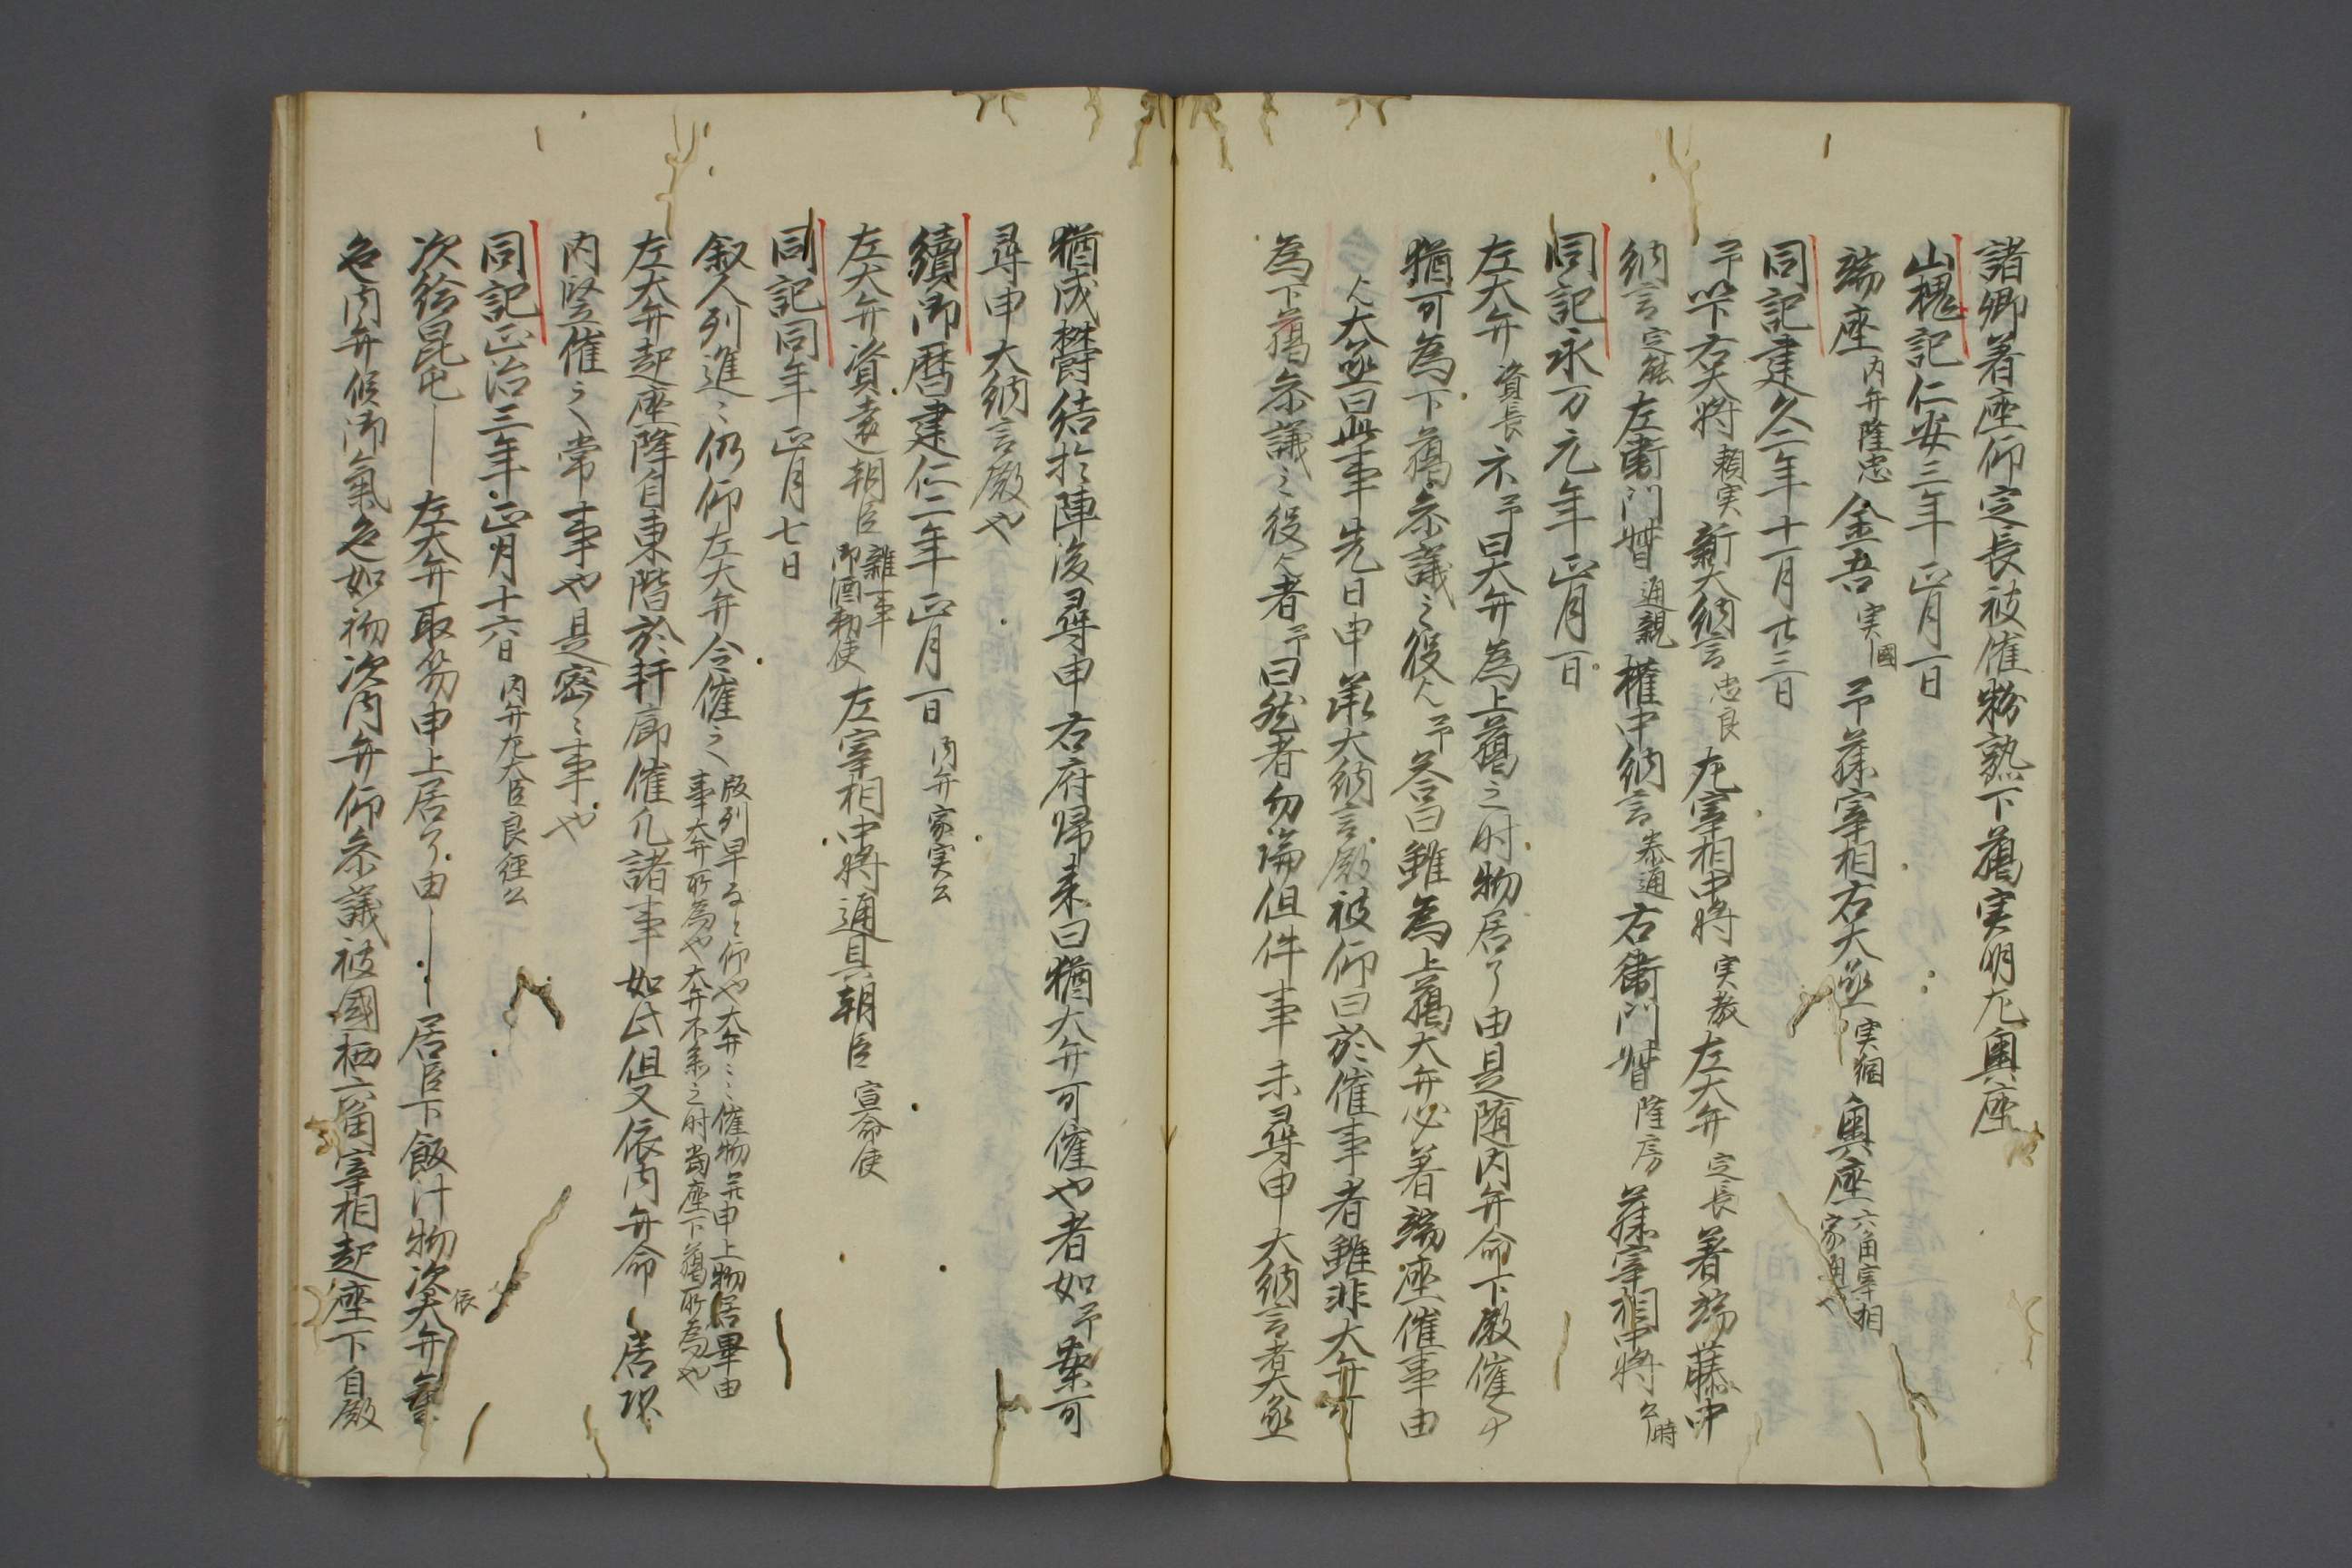 諸卿着座仰定長被催粉熟下﨟実明在奥座
山槐記仁安三年正月一日
端座内弁隆忠金吾実國予藤宰相右大丞実綱奥座六角宰相家通也
同記建久二年十一月廿三日
予以下右大将頼実新大納言忠良左宰相中将実教左大弁定長着端藤中
納言定能左衛門督通親権中納言泰通右衛門督隆房藤宰相中将公時
同記永万元年正月一日
左大弁資長不予曰大弁為上﨟之時物居了由是随内弁命下殿催
猶可為下﨟参議之役人予答曰雖為上﨟大弁必着端座催事由
大丞曰此事先日申承大納言殿被仰曰於催事者雖非大弁可
為下﨟参議之役人者予曰然者勿論但件事未尋申大納言者大丞
猶成欝結於陣後尋申右府帰来曰猶大弁可催也者如予案可
尋申大納言殿也
續御暦建仁二年正月一日内弁家実公
左大弁資実朝臣雑事御酒勅使左宰相中将通具朝臣宣命使
同記同年正月七日
叙人列進々仍仰左大弁令催之版列早可有仰也大弁催物并申上物居畢由事大弁所為也大弁不参之時当座下﨟所為也
左大弁起座降自東階於軒廊催凡諸事如此但又依内弁命居
内竪催之常事也是密々事也
同記正治三年正月十六日内弁左大臣良経公
次給昆屯―左大弁取笏申上居了由――居臣下飯汁物次大弁
色内弁候御氣色如初次内弁仰参議被國栖六角宰相起座下自殿